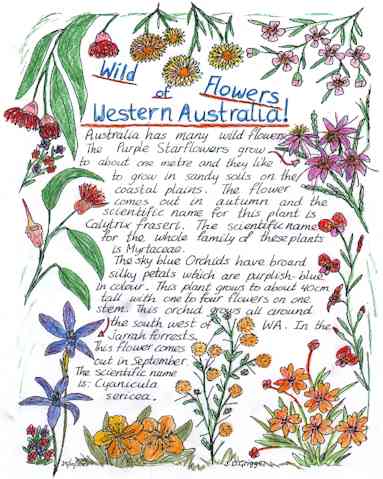 Wild
of Flowers
Western Australia!
Australia has many wild flowers
The Purple Starflowers grow
to about one metre and they like
to grow in sandy soils on the
coastal plains. The flower
comes out in autumn and the
scientific name for this plant is
Calytrix fraseri. The scientific name
for the whole family of these plants
is Myrtaceae.
The sky blue Orchids have broad
silky petals which are purplish-blue
in colour. This plant grows to about 40cm
tall with one to four flowers on one
stem. This orchid grows all around
the south west of WA. In the
Jarrah forrests.
This flower comes
out in September.
The scientific name
is: Cyanicula
sericea.